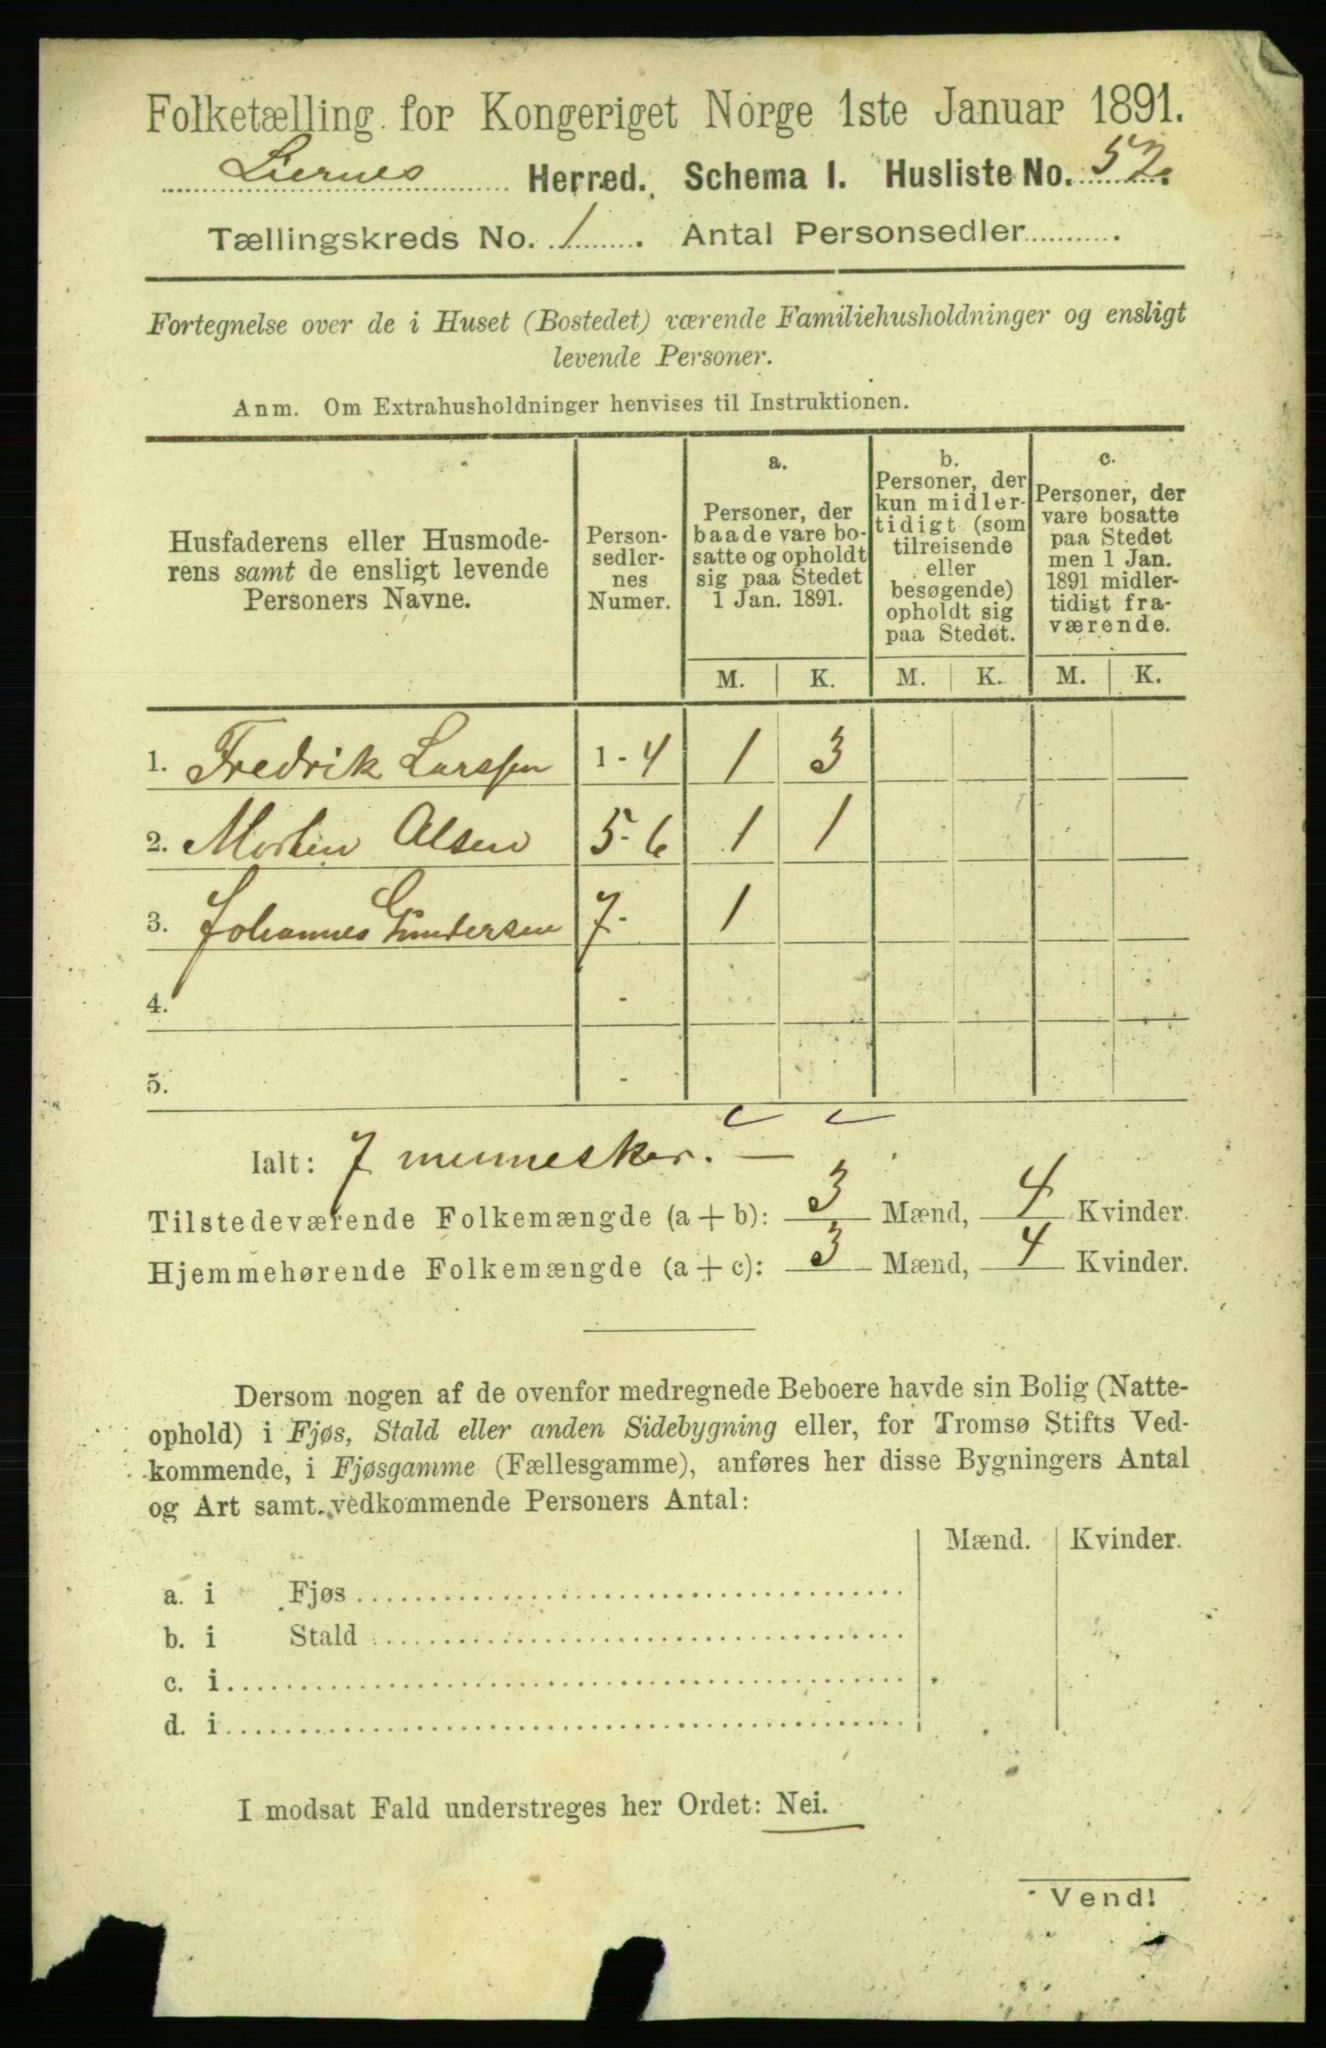 Folketælling for Kongeriget Norge 1ste Januar 1891.
Liernes Herred. Schema I. Husliste No. 52.
Tællingskreds No. 1. Antal Personsedler
Fortegnelse over de i Huset (Bostedet) værende Familiehusholdninger og ensligt
levende Personer.
Anm. Om Extrahusholdninger henvises til Instruktionen.
Husfaderens eller Husmode-
rens samt de ensligt levende
Personers Navne.
Person-
sedler-
nes
Numer.
a.
Personer, der
baade vare bo-
satte og opholdt
sig paa Stedet
1 Jan. 1891.
b.
Personer, der
kun midler-
tidigt (som
tilreisende
eller
besøgende)
opholdt sig
paa Stedet.
c.
Personer, der
vare bosatte
paa Stedet
men 1 Jan.
1891 midler-
tidigt fra-
værende.
M. K. M. K. M. K.
1. Fredrik Larssen 1-4 1 3
2. Morten Olsen 5-6 1 1
3. Johannes Gundersen 7- 1
4. -
5. -
Ialt: 7 mennesker. —
Tilstedeværende Folkemængde (a + b): 3 Mænd, 4 Kvinder.
Hjemmehørende Folkemængde (a + c): 3 Mænd, 4 Kvinder.
Dersom nogen af de ovenfor medregnede Beboere havde sin Bolig (Natte-
ophold) i Fjøs, Stald eller anden Sidebygning eller, for Tromsø Stifts Ved-
kommende, i Fjøsgamme (Fællesgamme), anføres her disse Bygningers Antal
og Art samt vedkommende Personers Antal:
Mænd. Kvinder.
a. i Fjøs
b. i Stald
c. i
d. i
I modsat Fald understreges her Ordet: Nei.
Vend!